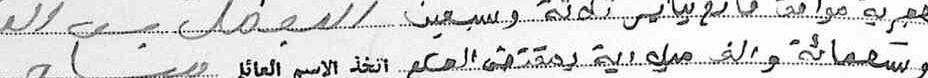 هجرية موافق فاتح يناير ثلاثة وسبعين
وتسعمائة والف ميلادية بمقتضى الحكم اتخذ الاسم العائلي